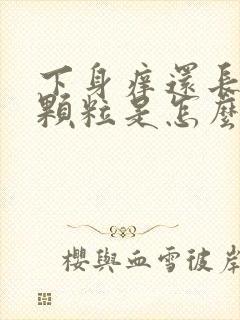 下身痒還長
顆粒是怎麼
櫻與血雪彼岸